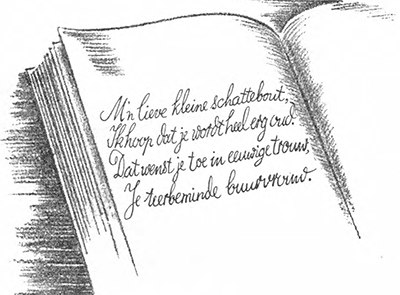 M'n lieve kleine schattebout,
Ik hoop dat je wordt heel erg oud.
Dat wenst je toe in eeuwige trouw,
Je teerbeminde buurvrouw.